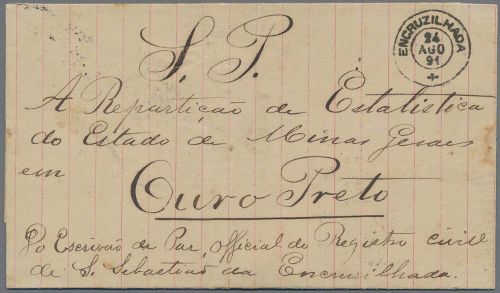 S. P.
ENCRUZILHADA
24
AGO
91
A Repartição de Estatistica
do Estado de Minas Geraes
em
Ouro Preto
Do Escrivão de Paz, official do Registro civil
de S. Sebastião da Encruzilhada.